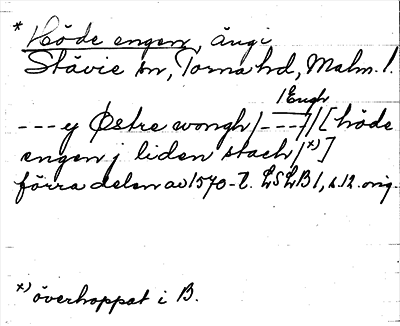 * Höde engen, äng i
Stävie sn, Torna hd, Malm. l.
1 Engh
---ej Østre wongh/---//[höde
engen j liden stach/*)]
förra delen av 1570-t. LSLB 1, s. 12. orig.
*) överhoppat i B.